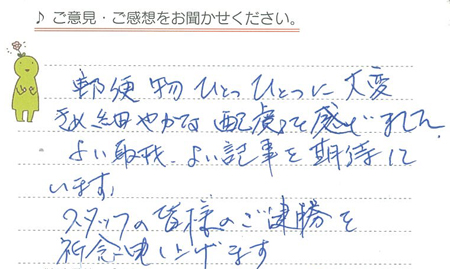 ♪ ご意見・ご感想をお聞かせください。
郵便物ひとつひとつに大変
きめ細やかな配慮を感じました
よい取材、よい記事を期待して
います。
スタッフの皆様のご健勝を
祈念申し上げます